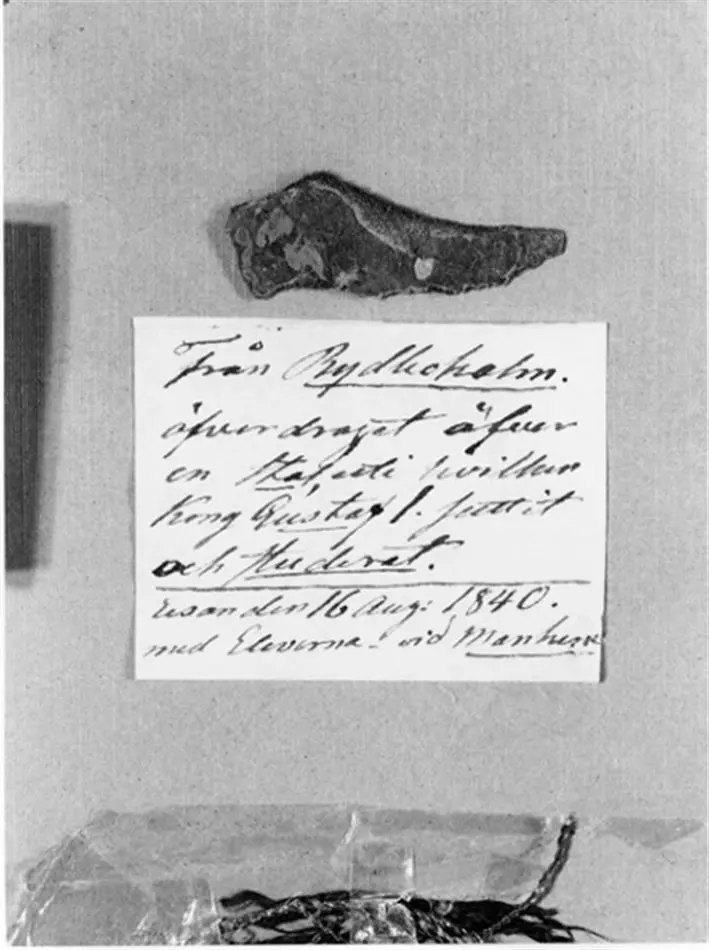 Från Rydboholm.
öfverdraget öfver
en hvilken
Kong Gustaf I. suttit
och Studerat.
Resan den 16 Aug: 1840.
med Eleverna - vid Manhem